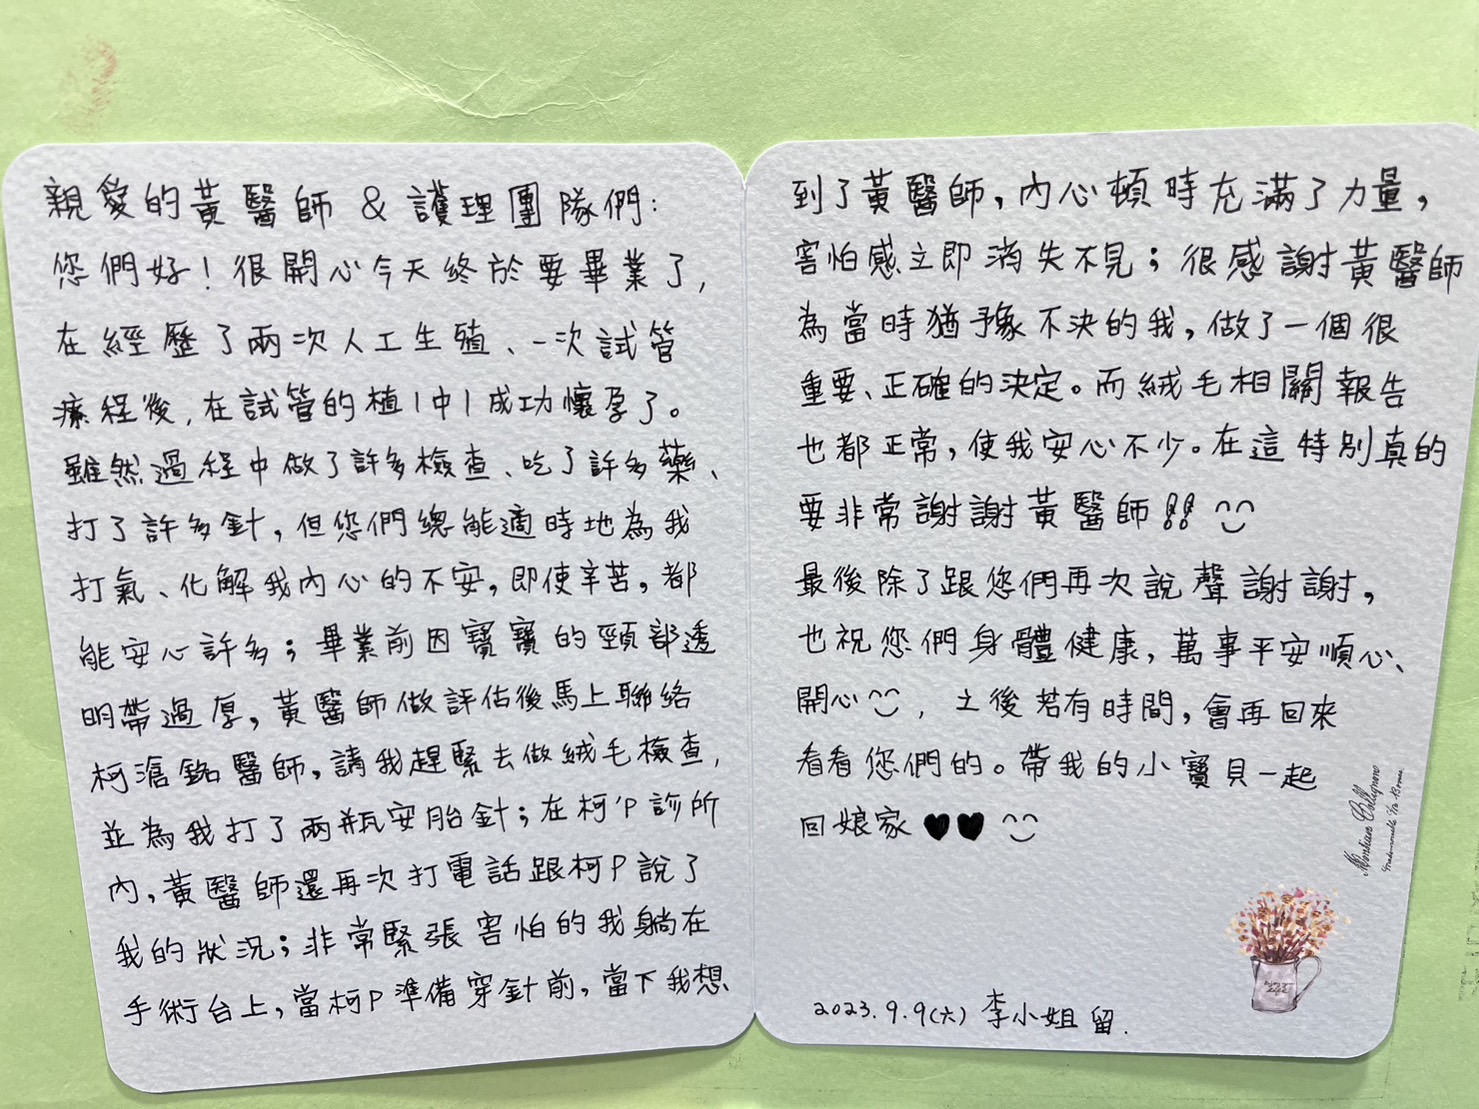 親愛的黃醫師 & 護理團隊們：
您們好！很開心今天終於要畢業了，
在經歷了兩次人工生殖、一次試管
療程後，在試管的植1中1成功懷孕了。
雖然過程中做了許多檢查、吃了許多藥、
打了許多針，但您們總能適時地為我
打氣、化解我內心的不安，即使辛苦，都
能安心許多；畢業前因寶寶的頸部透
明帶過厚，黃醫師做評估後馬上聯絡
柯滄銘醫師，請我趕緊去做絨毛檢查，
並為我打了兩瓶安胎針；在柯P診所
內，黃醫師還再次打電話跟柯P說了
我的狀況；非常緊張害怕的我躺在
手術台上，當柯P準備穿針前，當下我想
到了黃醫師，內心頓時充滿了力量，
害怕感立即消失不見；很感謝黃醫師
為當時猶豫不決的我，做了一個很
重要、正確的決定。而絨毛相關報告
也都正常，使我安心不少。在這特別真的
要非常謝謝黃醫師!!
最後除了跟您們再次說聲謝謝，
也祝您們身體健康，萬事平安順心、
開心^^，之後若有時間，會再回來
看看您們的。帶我的小寶貝一起
回娘家♥♥
2023.9.9(六) 李小姐 留.